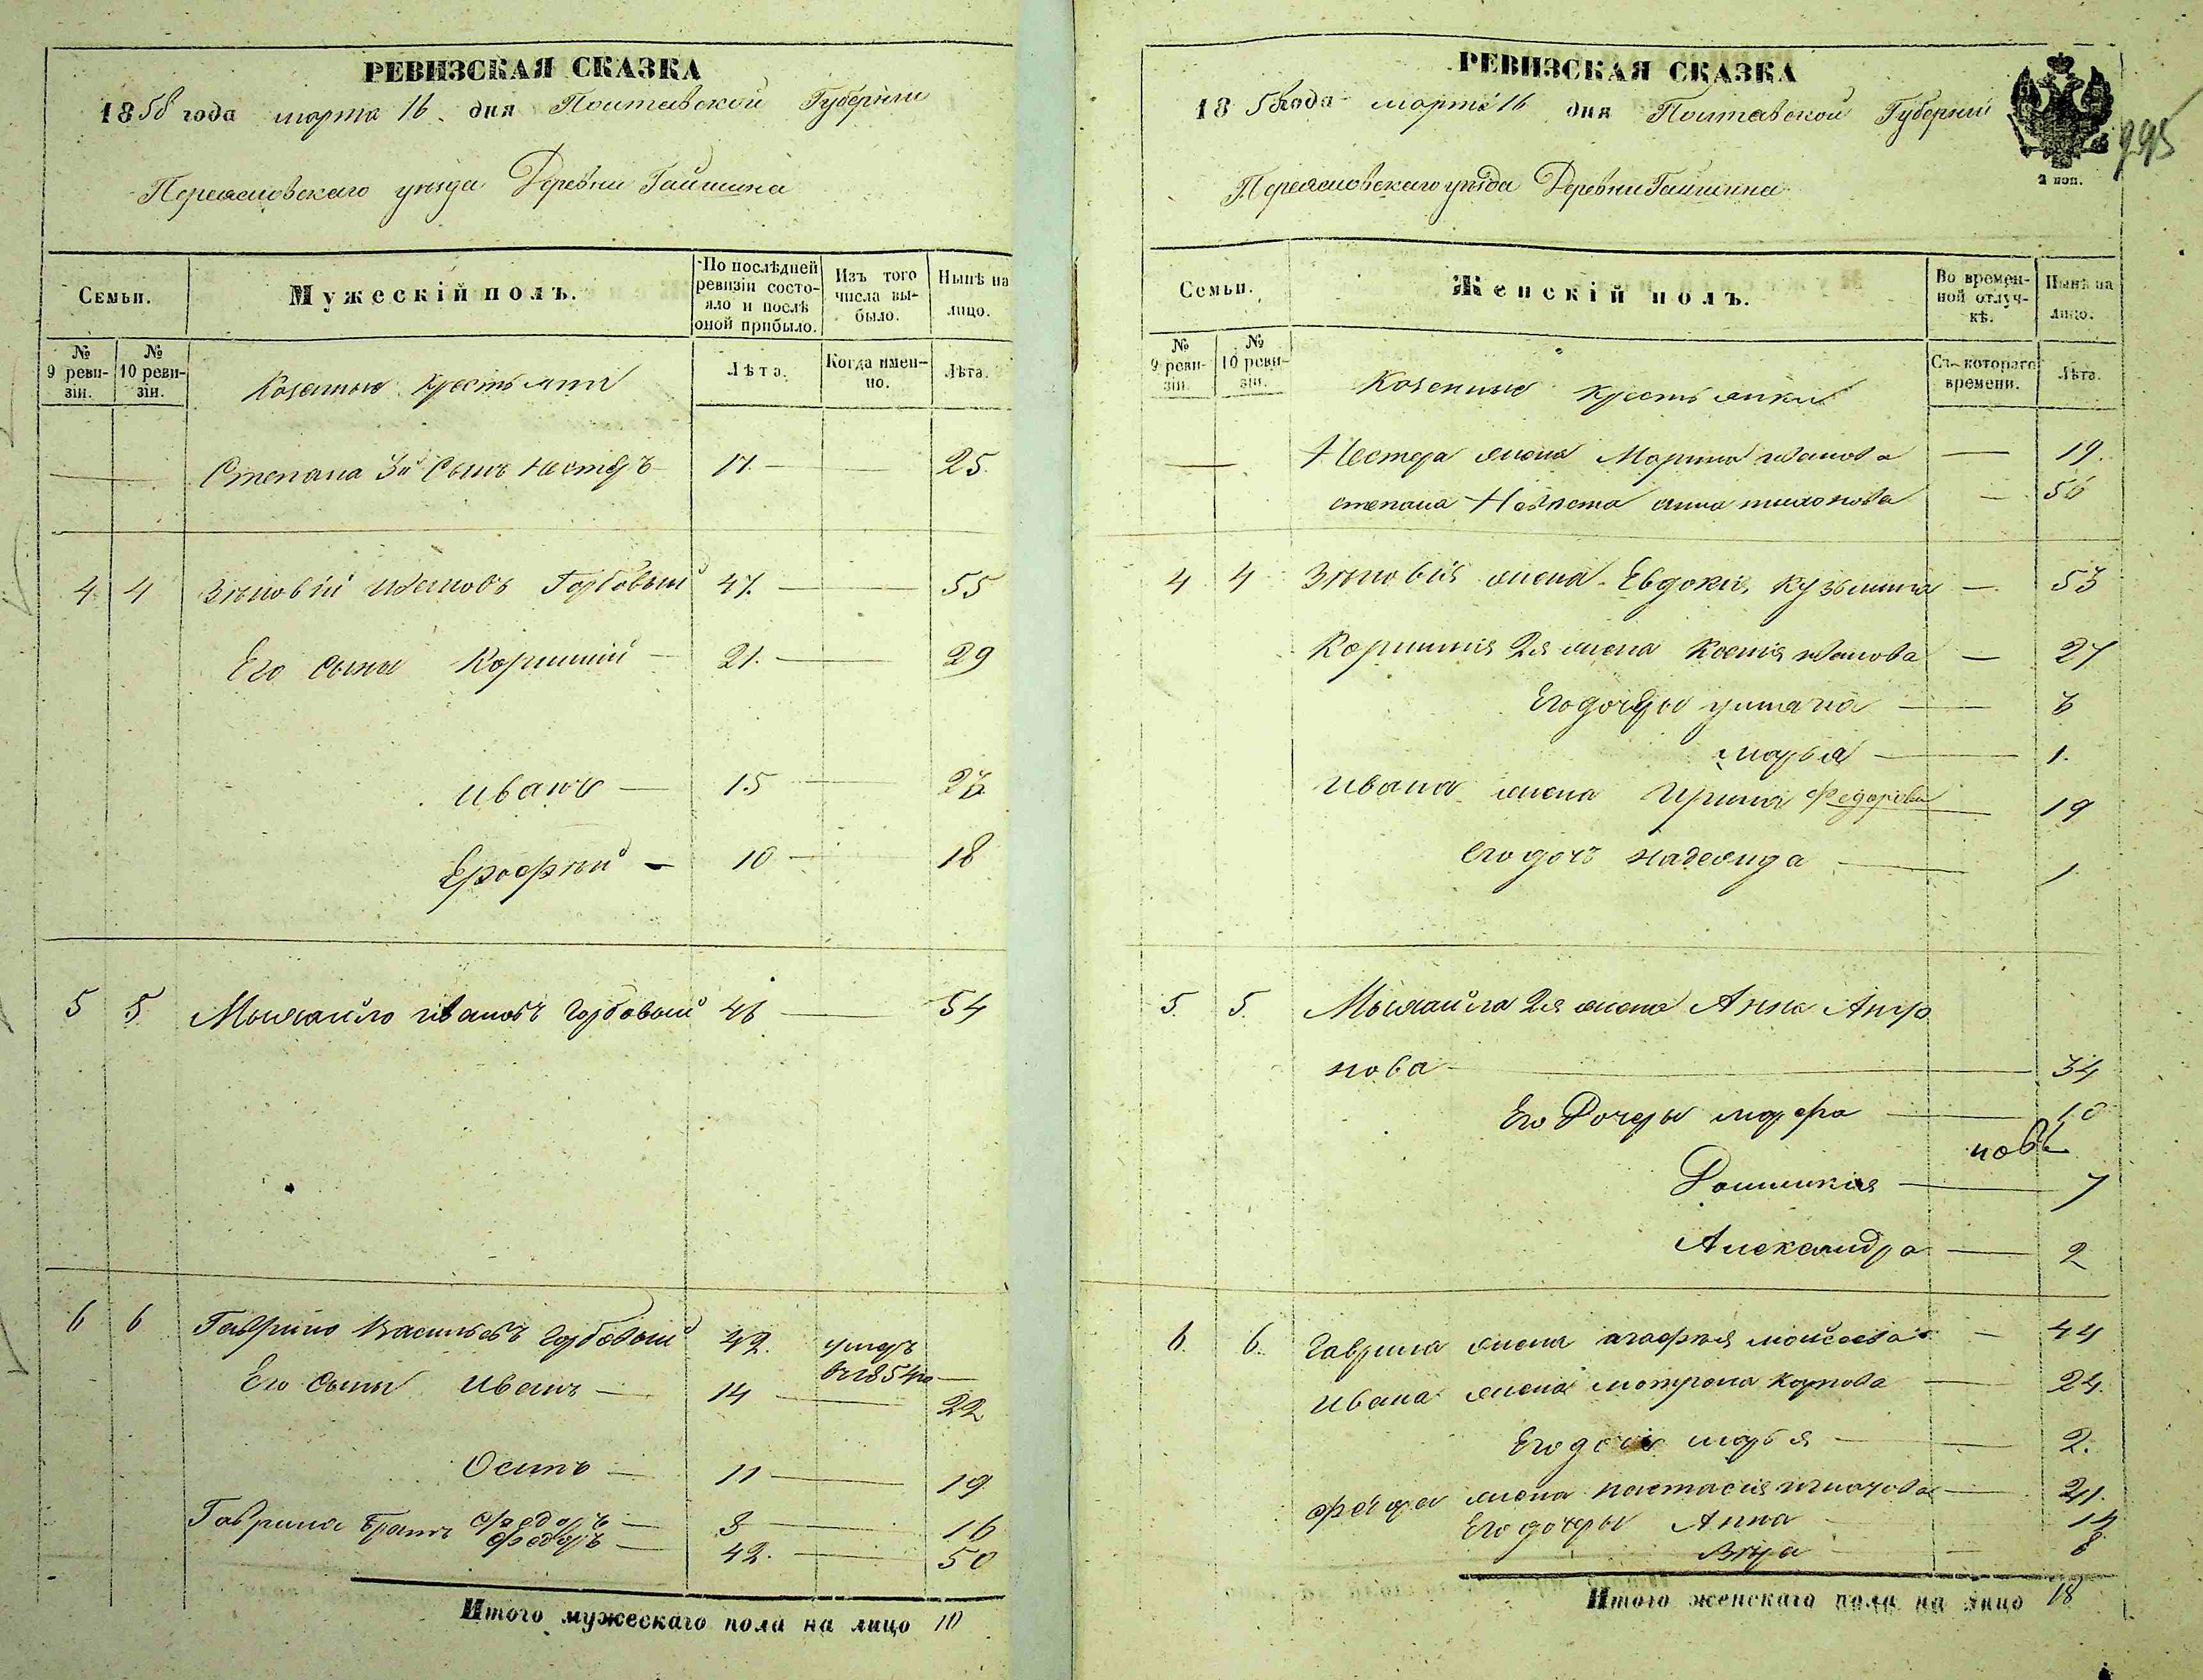 РЕВИЗСКАЯ СКАЗКА
1858 года марта 16 дня Полтавской Губернии
Переясловскаго уѣзда Деревни Гайшина
Семьи.
Мужескій полъ.
По послѣдней ревизіи состояло и послѣ оной прибыло.
Изъ того числа выбыло.
Нынѣ на лицо.
№ 9 ревизіи.
№ 10 ревизіи.
Казенные крестьяни
Лѣта.
Когда именно.
Лѣта.
Степана 3й Сынъ Нестеръ 17 25
4 4 Зѣновій Ивановъ Горбовый 47 55
Его сыны Корнилій 21 29
Иванъ 15 23
Ерофѣй 10 18
5 5 Михайло Ивановъ Горбовый 46 54
6 6 Гаврило Васильевъ Горбовый 42 умеръ
въ 1854го
Его сыны Иванъ 14 22
Осипъ 11 19
Федоръ 8 16
Гаврила братъ Федоръ 42 50
Итого мужескаго пола на лицо 10
РЕВИЗСКАЯ СКАЗКА
1858 года марта 16 дня Полтавской Губерніи
2 коп.
995
Переясловскаго уѣзда Деревни Гайшина
Семьи.
Женскій полъ.
Во временной отлучкѣ.
Нынѣ на лицо.
№ 9 ревизіи.
№ 10 ревизіи.
Казенные крестьянки
Съ котораго времени.
Лѣта.
Нестера жена Марина Иванова 19
Степана Невѣста анна 56
4 4 Зѣновія жена Евдокія Кузьмина 53
Корнилія 2я жена Ксенія Иванова 27
Его дочеры улияна 6
марья 1
Ивана жена Ирина Федорова 19
его дочь надежда 1
5 5 Михайла 2я жена Анна
нова 34
Его Дочеры марфа 10
Домникія 7
Александра 2
6 6 Гаврила жена агафья моисеева 44
Ивана жена мотрона Карпова 24
Его дочь марья 2
Федора жена настасія игнатова 41
Его дочеры Анна 14
Вѣра 8
Итого женскаго пола на лицо 18